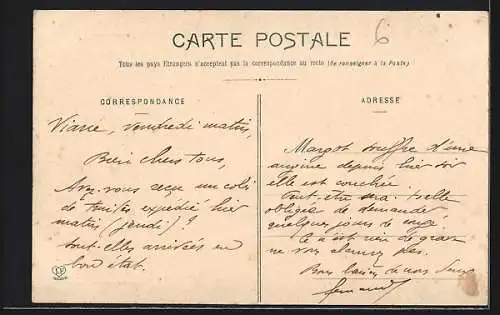 6
CARTE POSTALE
Tous les pays Étrangers n'acceptent pas la correspondance au recto (Se renseigner à la Poste)
CORRESPONDANCE
Viane, vendredi matin,
Bien chers tous,
Avez-vous reçu un colis
de truites expédié hier
matin (jeudi) ?
sont-elles arrivées en
bon état.
ADRESSE
Margot souffre d'une
angine depuis hier soir
elle est couchée.
Peut-être sera-t-elle
obligée de demander
quelques jours de congé.
Ce n'est rien de grave
ne vous alarmez pas.
Bons baisers de nous deux
Fernand